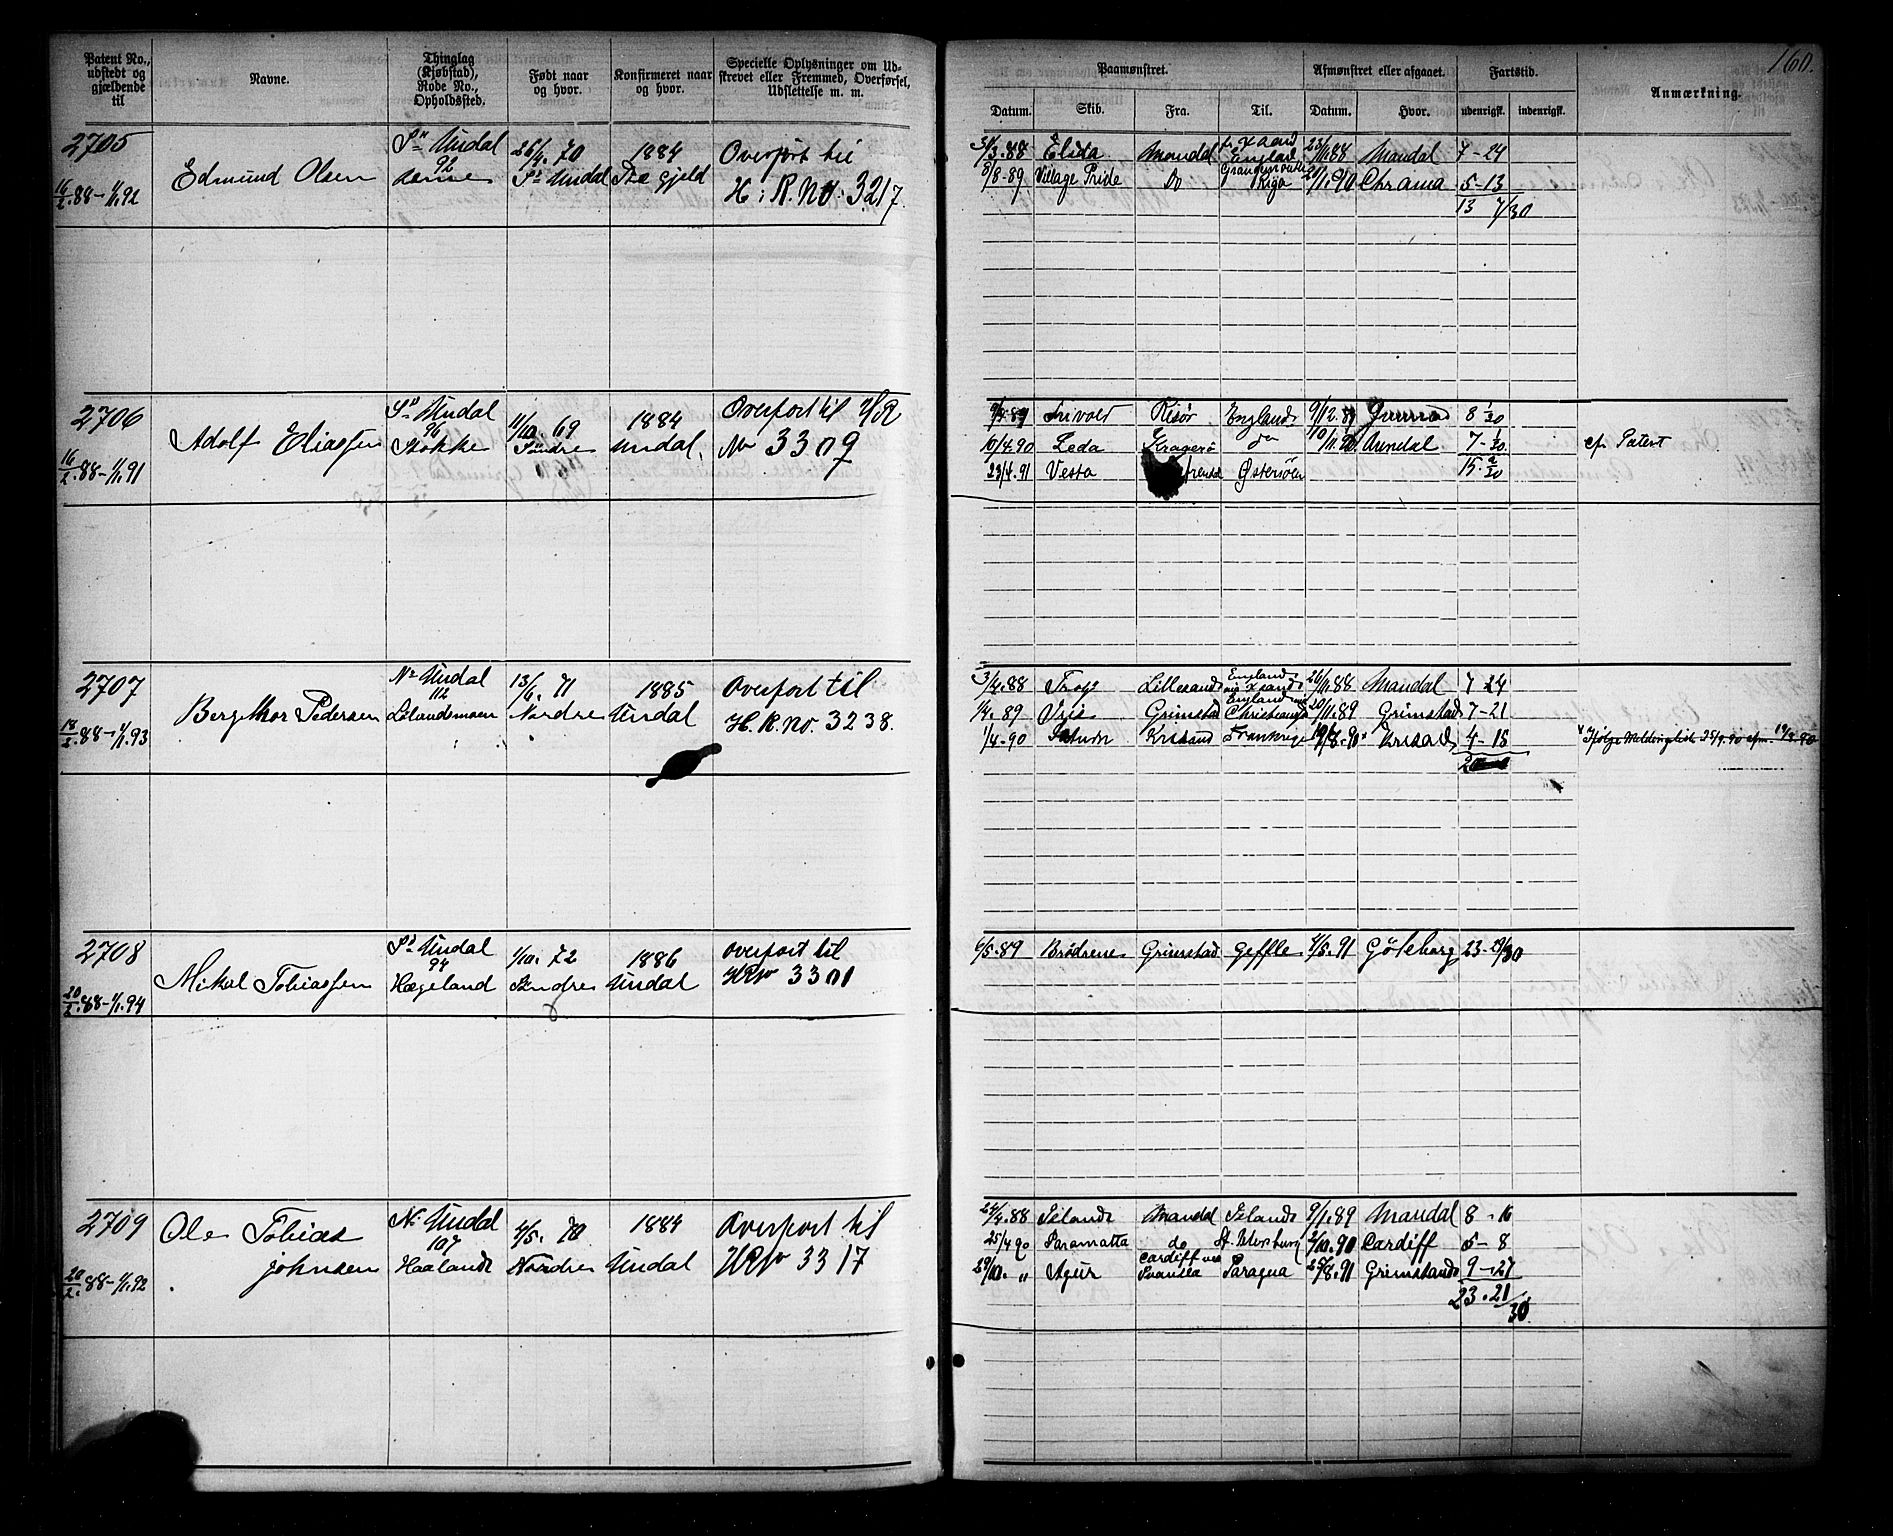 160.
Patent No., udstedt og gjældende til
Navne.
Thinglag (Kjøbstad), Rode No., Opholdssted.
Født naar og hvor.
Konfirmeret naar og hvor.
Specielle Oplysninger om Udskrevet eller Fremmed, Overførsel, Udslettelse m. m.
Paamønstret.
Afmønstret eller afgaaet.
Fartstid.
Anmærkning.
Datum. Skib. Fra. Til. Datum. Hvor. udenrigsk. indenrigsk.
2705
16/2.88-1/1.92
Edmund Olsen
Sr Undal
92
26/4.70
Sr Undal
1884
Overført til
H: R. No: 3217.
3/3.88 Elida Mandal England 23/11.88 Mandal 7-24
8/8-89 Village Pride Do Riga Chrania 5-13
13 7/30
2706
16/2.88-1/1.91
Adolf Eliassen
Sr Undal
96
Stokke
11/10.69
Søndre
1884
Undal.
Overført til H/R
No 3309
9/4.89 Trivold Risør England 9/12.89 8 1/30
10/4.90 Leda Kragerø do Arendal 7-1/30 cfr. Patent
23/4.91 Vesta Østersøen 15. 2/30
2707
18/2.88-1/1.93
Berge Thor Pedersen
Nr Undal
112
13/6.71
Nordre
1885
Undal
Overført til
H. R. No. 3238.
3/4.88 Lillesand England 26/11.88 Mandal 7-24
1/4.89 Iris Grimstad England Christiania 20/11.89 Grimstad 7-21
1/4-90 Krsand Frankrige 19/8.90 Krsand 4-15 Ifølge Meldingsliste 25/9.90 afm. 19/8.90
2708
20/2.88-1/1.94
Mikal Tobiassen
Sr Undal
94
Hægeland
1/10.72
Søndre
1886
Undal
Overført til
HRNo 3301
6/5.89 Brødrene Grimstad Geffle 4/5.91 Göteborg 23-29/30
2709
20/2.88-1/1.92
Ole Tobias
Johnsen
N. Undal
107
Haaland
4/5.70
Nordre
1884
Undal
Overført til
HRNo 3317
24/4.88 Island Mandal Island 9/1.89 Mandal 8-16
25/4 90 Paramatta do St. Petersburg 2/10.90 Cardiff 5-8
29/10. " Cardiff ved Svansea Paragua 25/8.91 Grimstad 9-27
23.21/30